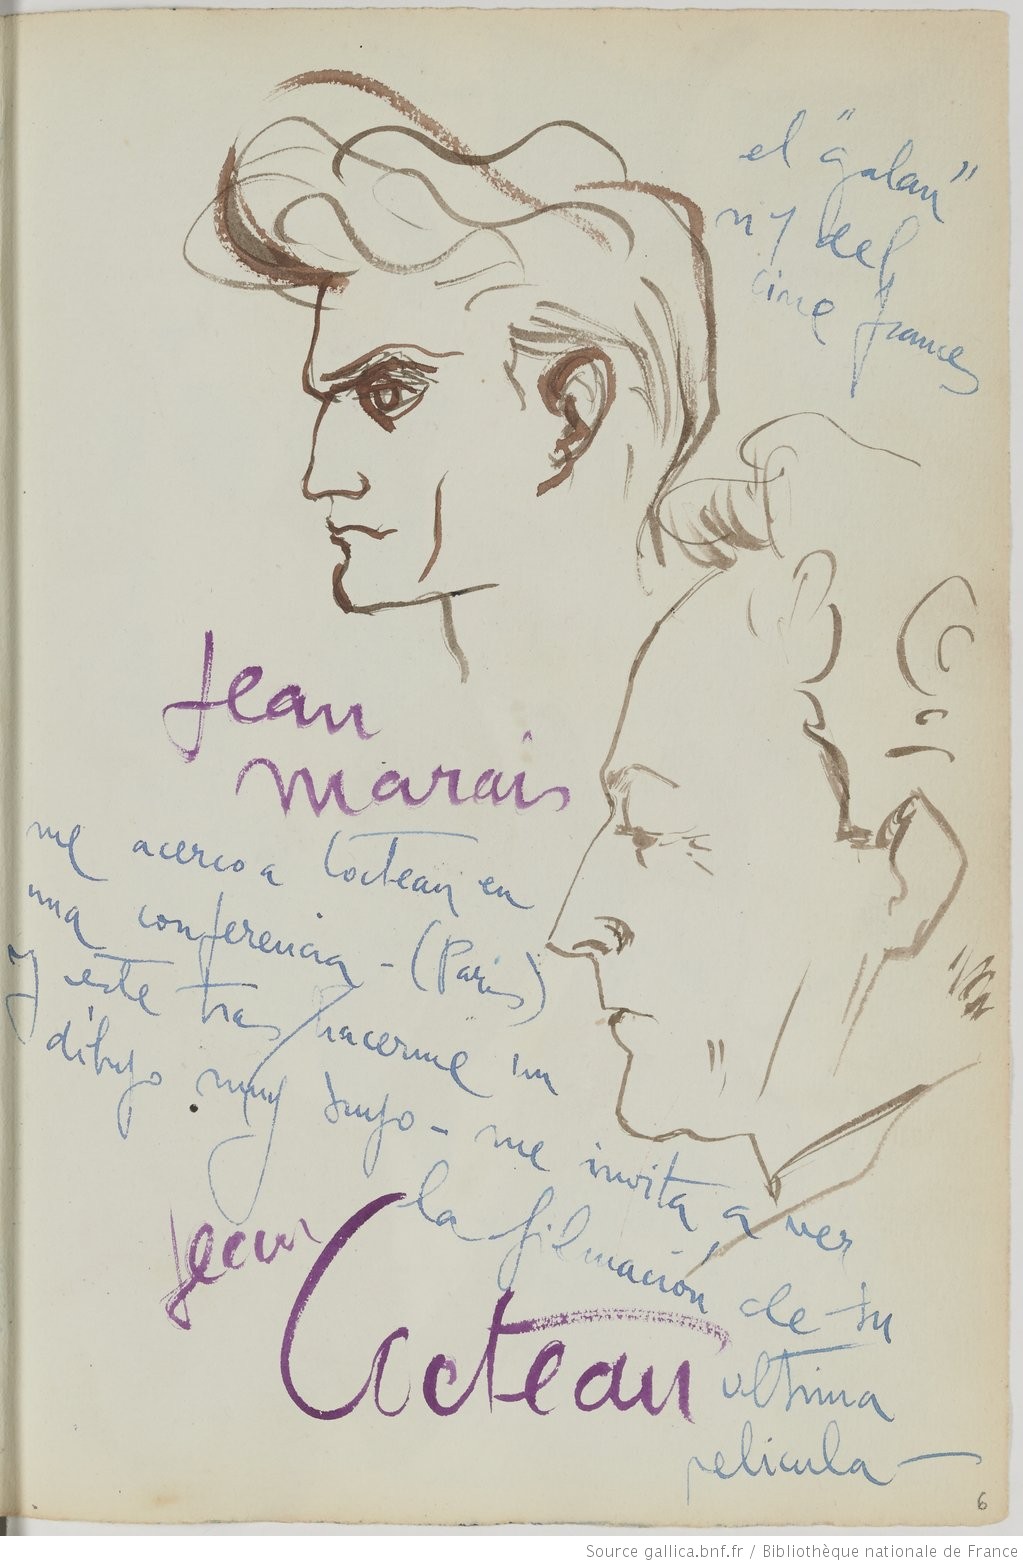 el "galan"
nº 1 del
cine frances
Jean
marais
me acerco a Cocteau en
una conferencia - (Paris)
y este tras hacerme un
dibujo muy suyo - me invita, a ver
la filmación de su
ultima
pelicula —
Jean
Cocteau
6
Source gallica.bnf.fr / Bibliothèque nationale de France